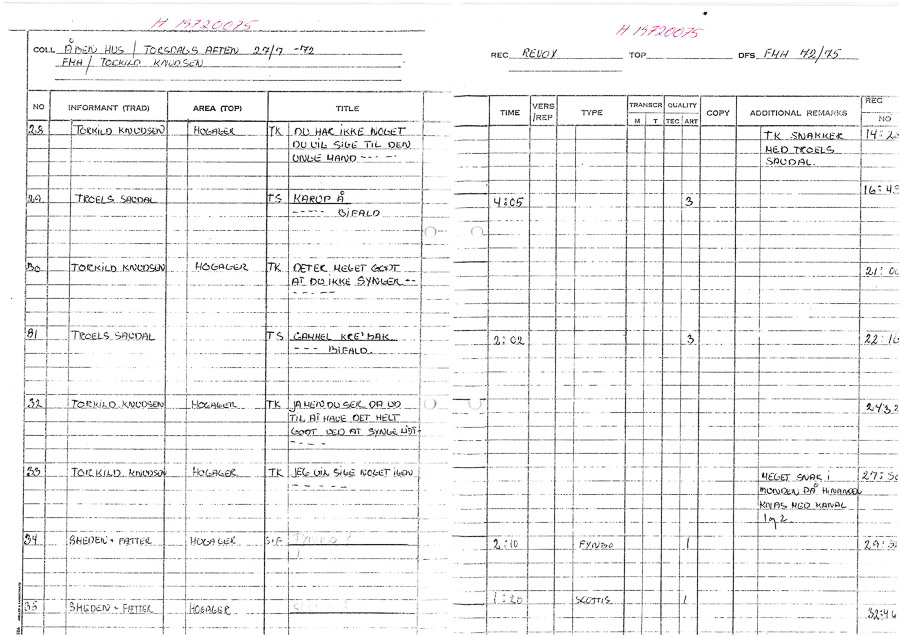 H 19720075
COLL ÅBEN HUS / TORSDAGS AFTEN 27/7 -72
FMH / TORKILD KNUDSEN
NO INFORMANT (TRAD) AREA (TOP) TITLE
28 TORKILD KNUDSEN HOGAGER TK DU HAR IKKE NOGET
DU VIL SIGE TIL DEN
UNGE MAND ----
29 TROELS SAUDAL TS KARUP Å
---- BIFALD
30 TORKILD KNUDSEN HOGAGER TK DET ER MEGET GODT
AT DU IKKE SYNGER --
-----
31 TROELS SAUDAL TS GAMMEL
---- BIFALD.
32 TORKILD KNUDSEN HOGAGER TK JAMEN DU SER DA UD
TIL AT HAVE DET HELT
GODT VED AT SYNGE LIDT-
----
33 TORKILD KNUDSEN HOGAGER TK JEG VIL SIGE NOGET IGEN
-----
34 SMEDEN + FÆTTER HOGAGER S+F
35 SMEDEN + FÆTTER HOGAGER
H 19720075
REC REVOX TOP DFS FMH 72/75
TIME VERS /REP TYPE TRANSCR M T QUALITY TEC ART COPY ADDITIONAL REMARKS REC NO
T.K SNAKKER 14:2
MED TROELS
SAUDAL.
16:4
4:05 3
21:0
2:02 3 22:16
24:32
MEGET SNAK I 27:50
MUNDEN PÅ HINANDEN
KNAS MED KANAL
1 og 2
2:10 FYNBO 1 29:5
1:20 SCOTTIS 1
32:46